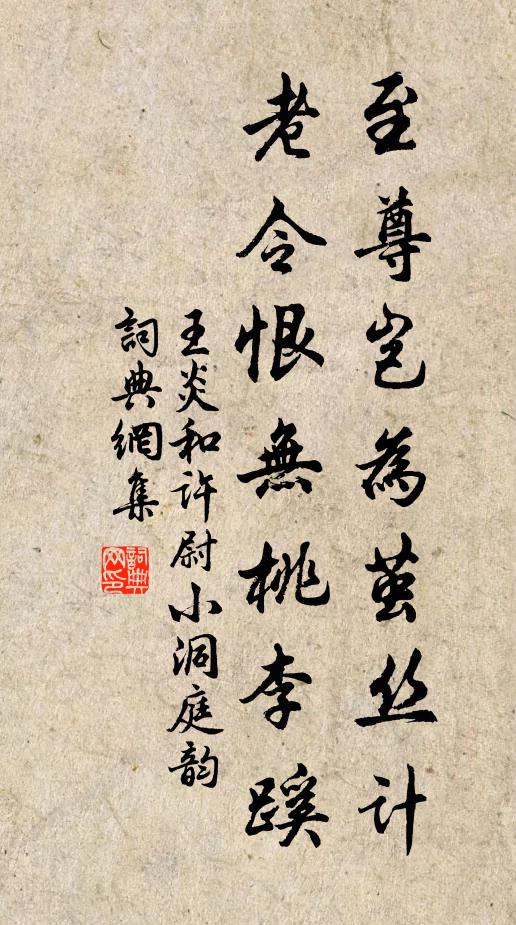 至尊岂為茧丝计
老令恨無桃李蹊
王炎和许尉小洞庭韵
詞典網集
詞典網印